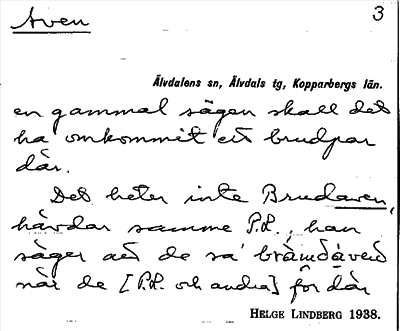 Aven
3
Älvdalens sn, Älvdals tg, Kopparbergs län.
en gammal sägen skall det
ha omkommit ett brudpar
där.
Det heter inte Brudaven,
hävdar samme P.L., han
säger att de sa'
när de [P.L. och andra] för där
HELGE LINDBERG 1938.